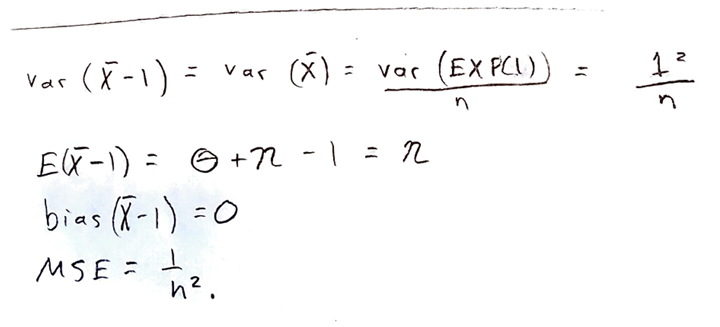 var (X̄-1) = var (X̄) = var (EXP(1)) / n = 1² / n
E(X̄-1) = Θ + n - 1 = n
bias (X̄-1) = 0
MSE = 1/n².